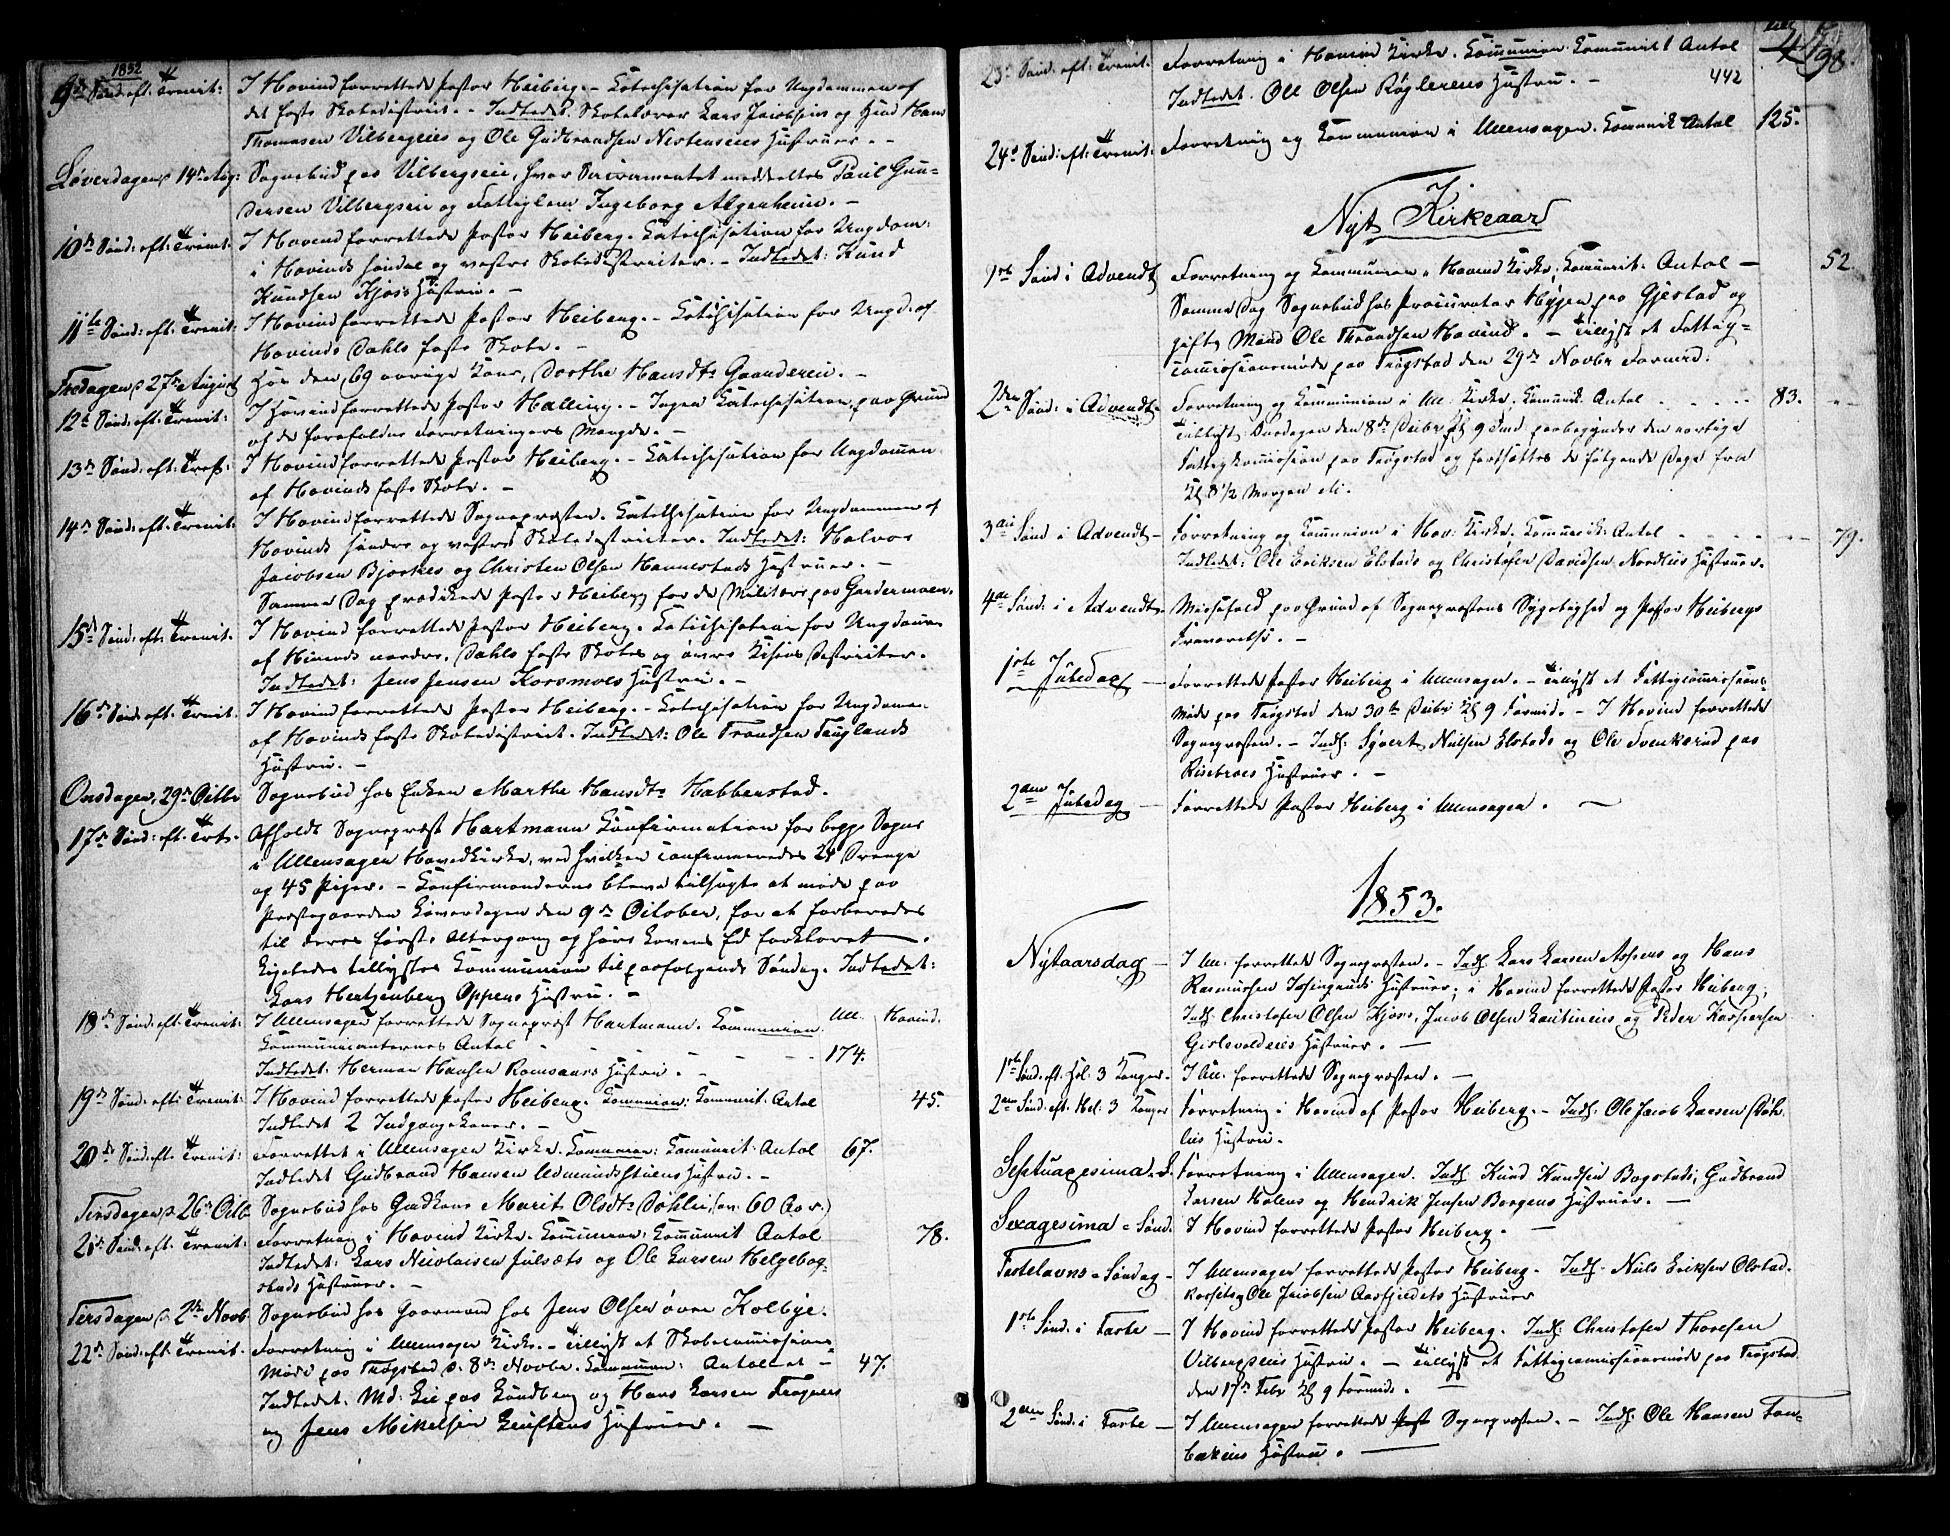 1852
9de Sønd: eft: Trinit: I Hovind forrettede Pastor Heiberg. – Catechisation for Ungdommen af
det faste Skoledistrict. – Indledet: Skolelærer Lars Jacobsens og Hans
Thomasen Vilbergeies og Ole Gudbrandsen Nestenseies Hustruer. –
Løverdagen d 14de Aug: Sognebud paa Vilbergseie, hvor Sacramentet meddeeltes Paul Gun-
dersen Vilbergseie og Fattiglem Ingeborg Algerheim. –
10de Sønd: eft: Trinit: I Hovind forrettede Pastor Heiberg. Catechisation for Ungdom:
i Hovinds søndre og vestre Skoledistricter. – Indledet: Knud
Knudsen Kjos's Hustru. –
11te Sønd: eft: Trinit: I Hovind forrettede Pastor Heiberg. – Catechisation for Ungd: af
Hovinds Dahls faste Skole. –
Fredagen d 27de August Hos den 69 aarige Kone, Dorthe Hansdtr Gaardereie. –
12te Sønd: eft: Trinit: I Hovind forrettede Pastor Halling. – Ingen Catechisation, paa Grund
af de forefaldne Forretningers Mængde. –
13de Sønd: eft: Tref: I Hovind forrettede Pastor Heiberg. – Catechisation for Ungdommen
af Hovinds faste Skole. –
14de Sønd: eft: Trinit: I Hovind forrettede Sognepræsten. Catechisation for Ungdommen af
Hovinds søndre og vestre Skoledistricter. Indledet: Halvor
Jacobsen Bjerkes og Christen Olsen Hannestads Hustruer. –
Samme Dag prædikede Pastor Heiberg for de Militære paa Gardermoen.
15de Sønd: eft: Trinit: I Hovind forrettede Pastor Heiberg. Catechisation for Ungdom
af Hovinds nordre, Dahls faste Skoles og øvre Districter.
Indledet: Jens Jensen Korsmoes Hustru. –
16de Sønd: eft: Trinit: I Hovind forrettede Pastor Heiberg. – Catechisation for Ungdomm.
af Hovinds faste Skoledistrict. Indledet: Ole Trondsen Fuglands
Hustru. –
Onsdagen, 29de Sognebud hos Enken Marthe Hansdtr Habberstad.
17de Sønd: eft: Trt: Afholdt Sognepræst Hartmann Confirmation for begge Sogne
i Ullensager Hovedkirke, ved hvilken confirmeredes 24 Drenge
og 45 Piger. – Confirmanderne bleve tilsagte at møde paa
Præstegaarden Løverdagen den 9de October, for at forberedes
til deres første Altergang og høre Lovens Ed forklaret.
Ligeledes tillystes Communion til paafølgende Søndag. Indledet:
Lars Hertzenberg Oppens Hustru. –
18de Sønd: eft: Trinit: I Ullensager forrettede Sognepræst Hartmann. Communion. Ull. Hovind.
Communicanternes Antal 174.
Indledet: Herman Hansen Ramsaars Hustru. –
19de Sønd: eft: Trinit: I Hovind forrettede Pastor Heiberg. Communion: Communic: Antal 45.
Indledet 2 Indgangskoner. –
20de Sønd: eft: Trinit: Forrettet i Ullensager Kirke. Communion: Communic: Antal 67.
Indledet Gudbrand Hansen Amundstuens Hustru. –
Tirsdagen d. 26de Octb Sognebud hos Gaardkone Marit Olsdtr Døhlie, (er 60 Aar.)
21de Sønd: eft: Trinit: Forretning i Hovind Kirke. Communion: Communic Antal 78.
Indledet: Lars Nicolaisen Julsæts og Ole Larsen Helgebog-
stads Hustruer. –
Tirsdagen d. 2de Novb Sognebud hos Gaarmand hos Jens Olsen øvre Kolbye.
22de Sønd: eft: Trinit: Forretning i Ullensager Kirke. – Tillyst et Skolecommissions-
Møde paa Trøgstad d. 8de Novbr. Communion: Antallet – 47.
Indledet: Md: Lie paa Lundberg og Hans Larsen Trogners
og Jens Mikelsen Leuftens Hustruer. –
98
23de Sønd: eft: Trinit: Forretning i Hovind Kirke. Communion Communic: Antal 442
Indledet. Ole Olsen Røglereies Hustru. –
24de Sønd: eft: Trinit: Forretning og Communion i Ullensager. Communic Antal 125.
Nyt Kirkeaar
1ste Sønd i Advendt Forretning og Communion i Hovind Kirke, Communic: Antal – 52.
Samme Dag Sognebud hos Procurator Høyen paa Gjestad og
gifte Mand Ole Throndsen Hovind. – Tillyst et Fattig-
commissionsmøde paa Trøgstad den 29de Novbr Formid:
2den Sønd: i Advendt – Forretning og Communion i Ull: Kirke. Communic. Antal 83.
Tillyst: Onsdagen den 8de Decbr Kl 9 Fmd paabegynder den aarlige
Fattigkommission paa Trøgstad og fortsættes de følgende Dage fra
Kl 8 1/2 Morgen etc.
3die Sønd i Advendt – Forretning og Communion i Hov: Kirke. Communic: Antal 79.
Indledet: Ole Eriksen Elstads og Christofer Davidsen Nordlies Hustruer.
4de Sønd: i Advendt – Messefald paa Grund af Sognepræstens Sygelighed og Pastor Heibergs
Fraværelse. –
1ste Juledag – Forrettede Pastor Heiberg i Ullensager. – Tillyst et Fattigcommissions-
Møde paa Trøgstad den 30te Decbr Kl 9 Formid. – I Hovind forrettede
Sognepræsten. – Indl: Syvert Nielsen Elstads og Ole Svenkerud paa
Risebroes Hustruer. –
2den Juledag – Forrettede Pastor Heiberg i Ullensager. –
1853.
Nytaarsdag – I Ull: forrettede Sognepræsten. – Indl: Lars Larsen Aspens og Hans
Rasmussen Hustruer; i Hovind forrettede Pastor Heiberg,
Indl: Christofer Olsen Kjøs, Jacob Olsen og Peder Kaspersen
Hustruer. –
1ste Sønd: eft: Hel: 3 Konger – I Ull: forrettede Sognepræsten. –
2den Sønd: eft: Hel: 3 Konger Forretning i Hovind af Pastor Heiberg. – Indl: Ole Jacob Larsen Døh-
lies Hustru. –
Septuagesima S. Forretning i Ullensager. Indl: Knud Knudsen Bogstads, Gudbrand
Larsen Holens og Hendrik Jensen Borgens Hustruer. –
Sexagesima Sønd. I Hovind forrettede Pastor Heiberg. –
Fastelavns Søndag – I Ullensager forrettede Pastor Heiberg. Indl: Niels Eriksen Olstad-
og Ole Jacobsen Aasgjerdets Hustruer
1ste Sønd: i Faste – I Hovind forrettede Pastor Heiberg. Indl: Christofer Thoresen
Vilbergseies Hustru. – Tillyst et Fattigcommissionsmøde paa Trøgstad
den 17de Febr Kl 9 Formid. –
2den Sønd: i Faste – I Ullensager forrettede Sognepræsten. – Indl: Ole Hansen Fon-
bækeies Hustru. –